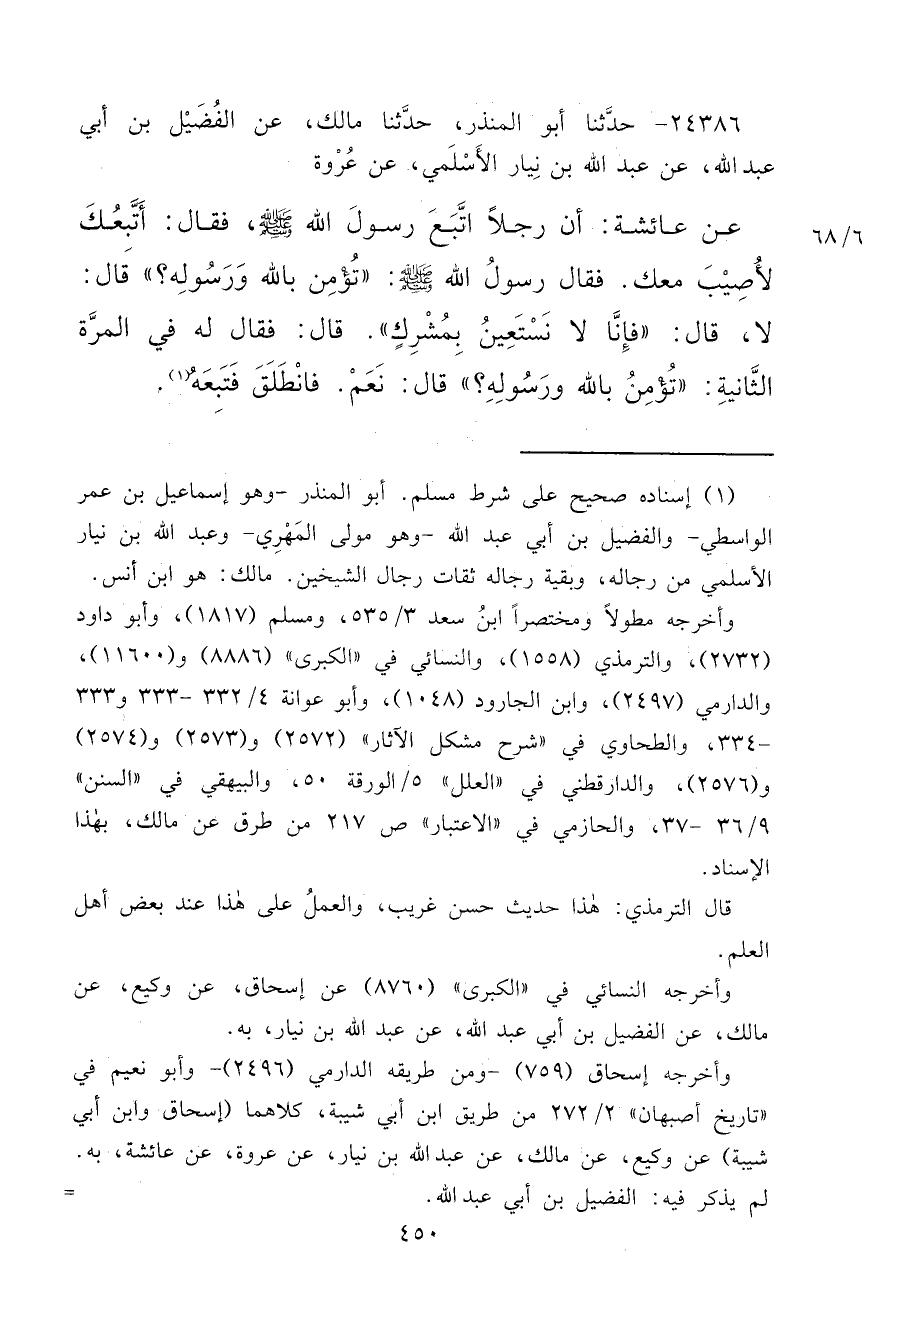 ٢٤٣٨٦- حدَّثنا أبو المنذر، حدَّثنا مالك، عن الفُضَيْل بن أبي
عبد الله، عن عبد الله بن نِيار الأَسْلَمي، عن عُرْوة
عن عائشة: أن رجلاً اتَّبَعَ رسولَ الله ﷺ، فقال: أَتَّبِعُكَ
٦٨/٦
لأُصِيْبَ معك. فقال رسولُ الله ﷺ: «تُؤْمِن بالله وَرَسُولِه؟» قال:
لا، قال: «فإِنَّا لا نَسْتَعِينُ بِمُشْرِكٍ». قال: فقال له في المرَّة
الثَّانيةِ: «تُؤْمِنُ بالله ورَسُولِهِ؟» قال: نَعَمْ. فانْطَلَقَ فَتَبِعَهُ(١).
(١) إسناده صحيح على شرط مسلم. أبو المنذر -وهو إسماعيل بن عمر
الواسطي- والفضيل بن أبي عبد الله -وهو مولى المَهْرِي- وعبد الله بن نيار
الأسلمي من رجاله، وبقية رجاله ثقات رجال الشيخين. مالك: هو ابن أنس.
وأخرجه مطولاً ومختصراً ابنُ سعد ٥٣٥/٣، ومسلم (١٨١٧)، وأبو داود
(٢٧٣٢)، والترمذي (١٥٥٨)، والنسائي في «الكبرى» (٨٨٨٦) و(١١٦٠٠)،
والدارمي (٢٤٩٧)، وابن الجارود (١٠٤٨)، وأبو عوانة ٣٣٢/٤ -٣٣٣ و٣٣٣
-٣٣٤، والطحاوي في «شرح مشكل الآثار» (٢٥٧٢) و(٢٥٧٣) و(٢٥٧٤)
و(٢٥٧٦)، والدارقطني في «العلل» ٥/الورقة ٥٠، والبيهقي في «السنن»
٣٦/٩ -٣٧، والحازمي في «الاعتبار» ص ٢١٧ من طرق عن مالك، بهٰذا
الإسناد.
قال الترمذي: هٰذا حديث حسن غريب، والعملُ على هٰذا عند بعض أهل
العلم.
وأخرجه النسائي في «الكبرى» (٨٧٦٠) عن إسحاق، عن وكيع، عن
مالك، عن الفضيل بن أبي عبد الله، عن عبد الله بن نيار، به.
وأخرجه إسحاق (٧٥٩) -ومن طريقه الدارمي (٢٤٩٦)- وأبو نعيم في
«تاريخ أصبهان» ٢٧٢/٢ من طريق ابن أبي شيبة، كلاهما (إسحاق وابن أبي
شيبة) عن وكيع، عن مالك، عن عبد الله بن نيار، عن عروة، عن عائشة، به.
لم يذكر فيه: الفضيل بن أبي عبد الله. =
٤٥٠